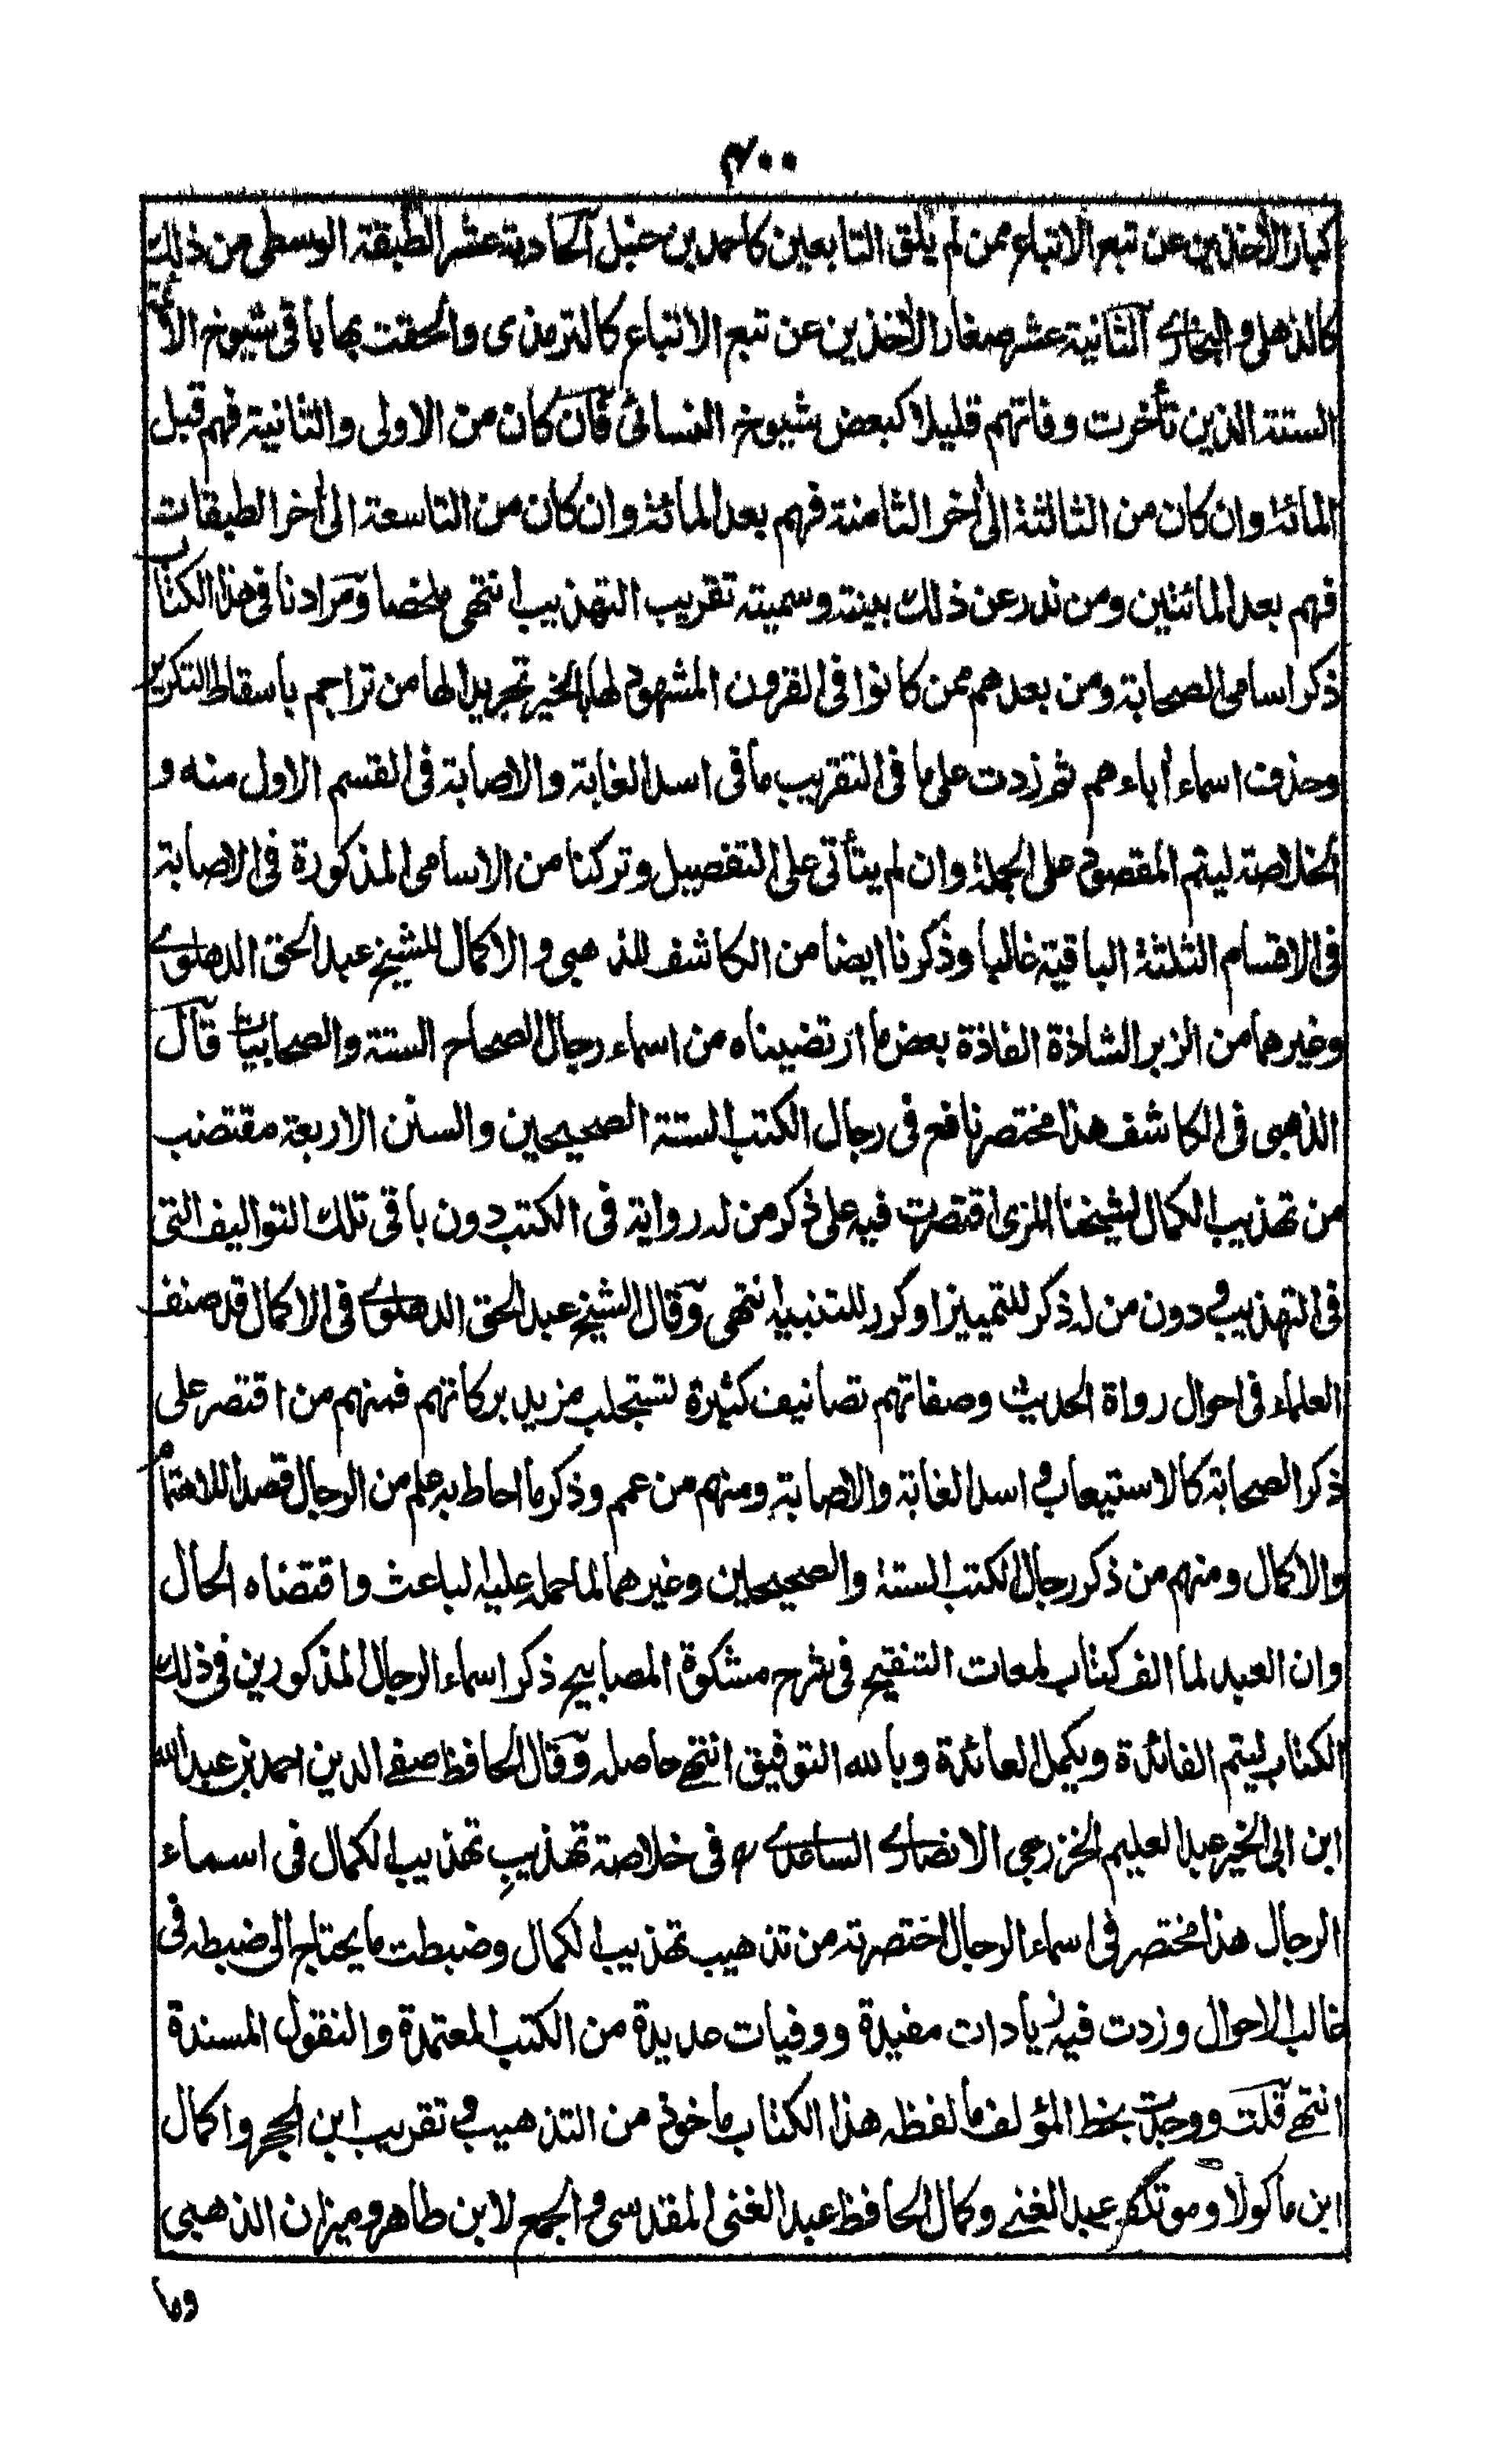 ٤٠٠
كبار الأخذين عن تبع الاتباع ممن لم يلق التابعين كاحمد بن حنبل الحادية عشر الطبقة الوسطى من ذلك
كالذهلى والبخارى الثانية عشر صغار الأخذين عن تبع الاتباع كالترمذى والحقت بها باقى شيوخ الأئمة
الستة الذين تأخرت وفاتهم قليلا كبعض شيوخ النسائى فان كان من الاولى والثانية فهم قبل
المائة وان كان من الثالثة الى أخر الثامنة فهم بعد المائة وان كان من التاسعة الى أخر الطبقات
فهم بعد المائتين ومن ندر عن ذلك بينته وسميته تقريب التهذيب انتهى ملخصا ومرادنا فى هذا الكتاب
ذكر اسامى الصحابة ومن بعدهم ممن كانوا فى القرون المشهود لها بالخير تجريدا لها من تراجم باسقاط التكرير
وحذفت اسماء أباءهم ثم زدت على ما فى التقريب ما فى اسد الغابة والاصابة فى القسم الاول منه و
الخلاصة ليتم المقصود على الجملة وان لم يتأتى على التفصيل وتركنا من الاسامى المذكورة فى الاصابة
فى الاقسام الثلثة الباقية غالبا وذكرنا ايضا من الكاشف للذهبى والاكمال للشيخ عبد الحق الدهلوى
وغيرهما من الزبر الشاذة الفاذة بعض ما ارتضيناه من اسماء رجال الصحاح الستة والصحابيات قال
الذهبى فى الكاشف هذا مختصر نافع فى رجال الكتب الستة الصحيحين والسنن الاربعة مقتضب
من تهذيب الكمال لشيخنا المزى اقتصرت فيه على ذكر من له رواية فى الكتب دون باقى تلك التواليف التى
فى التهذيب ودون من له ذكر للتمييز او كرر للتنبيه انتهى وقال الشيخ عبد الحق الدهلوى فى الاكمال قد صنف
العلماء فى احوال رواة الحديث وصفاتهم تصانيف كثيرة لتستجلب مزيد بركاتهم فمنهم من اقتصر على
ذكر الصحابة كالاستيعاب و اسد الغابة والاصابة ومنهم من عمم وذكر ما احاط به علم من الرجال قصدا للاهتمام
والاكمال ومنهم من ذكر رجال الكتب الستة والصحيحين وغيرهما لما حمله عليه الباعث واقتضاه الحال
وان العبد لما الف كتاب لمعات التنقيح فى شرح مشكوة المصابيح ذكر اسماء الرجال المذكورين فى ذلك
الكتاب ليتم الفائدة ويكمل العائدة وبالله التوفيق انتهى حاصله وقال الحافظ صفى الدين احمد بن عبد الله
ابن ابى الخير عبد العليم الخزرجى الانصارى الساعدى فى خلاصة تهذيبِ تهذيب الكمال فى اسماء
الرجال هذا مختصر فى اسماء الرجال اختصرته من تذهيب تهذيب الكمال وضبطت ما يحتاج الى ضبطه فى
غالب الاحوال وزدت فيه زيادات مفيدة ووفيات عديدة من الكتب المعتمدة والنقول المسندة
انتهى قلت ووجدت بخط المؤلف ما لفظه هذا الكتاب ماخوذ من التذهيب و تقريب ابن الحجر واكمال
ابن ماكولا وموتلف عبد الغنى وكمال الحافظ عبد الغنى المقدسى والجمع لابن طاهر وميزان الذهبى
وما